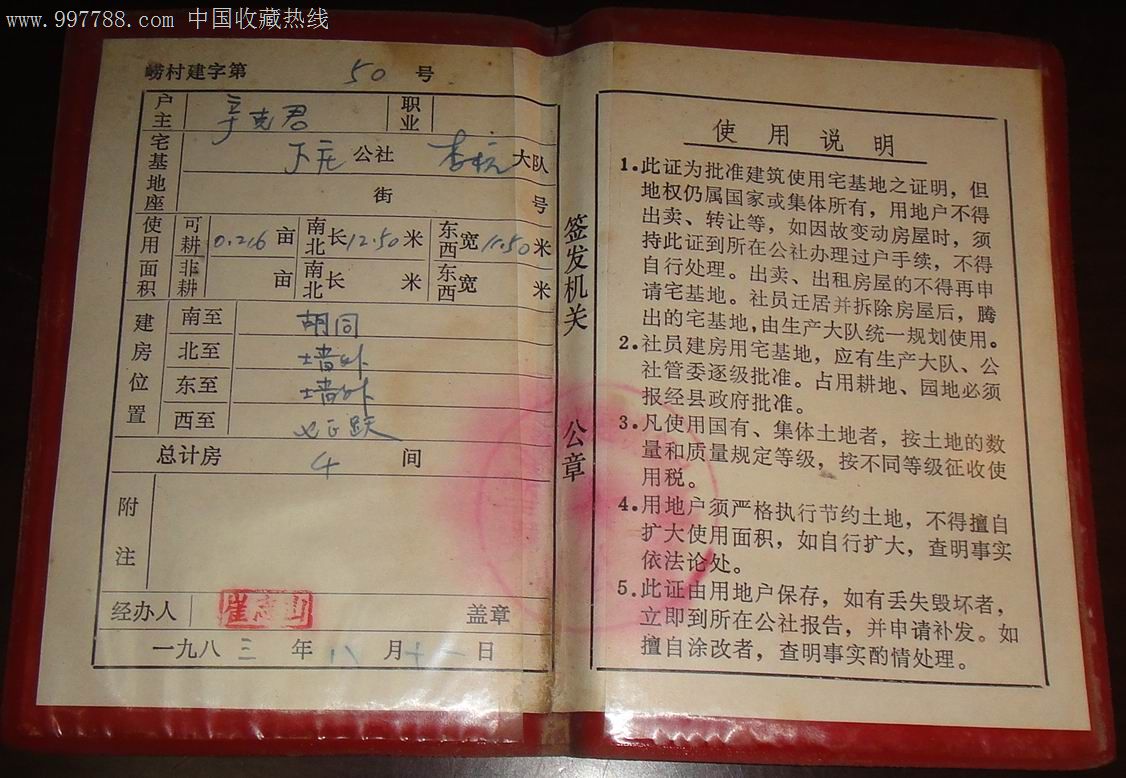 www.997788.com 中国收藏热线
崂村建字第 50 号
户主 辛克君 职业
宅基地座 下庄 公社 大队
街 号
使用面积
可耕 0.216 亩 南北长 12.50 米 东西宽 11.50 米
非耕 亩 南北长 米 东西宽 米
建房位置
南至 胡同
北至 墙外
东至 墙外
西至
总计房 4 间
附注
经办人 崔志山 盖章
一九八三年八月十一日
签发机关 公章
使用说明
1.此证为批准建筑使用宅基地之证明,但
地权仍属国家或集体所有,用地户不得
出卖、转让等,如因故变动房屋时,须
持此证到所在公社办理过户手续,不得
自行处理。出卖、出租房屋的不得再申
请宅基地。社员迁居并拆除房屋后,腾
出的宅基地,由生产大队统一规划使用。
2.社员建房用宅基地,应有生产大队、公
社管委逐级批准。占用耕地、园地必须
报经县政府批准。
3.凡使用国有、集体土地者,按土地的数
量和质量规定等级,按不同等级征收使
用税。
4.用地户须严格执行节约土地,不得擅自
扩大使用面积,如自行扩大,查明事实
依法论处。
5.此证由用地户保存,如有丢失毁坏者,
立即到所在公社报告,并申请补发。如
擅自涂改者,查明事实酌情处理。